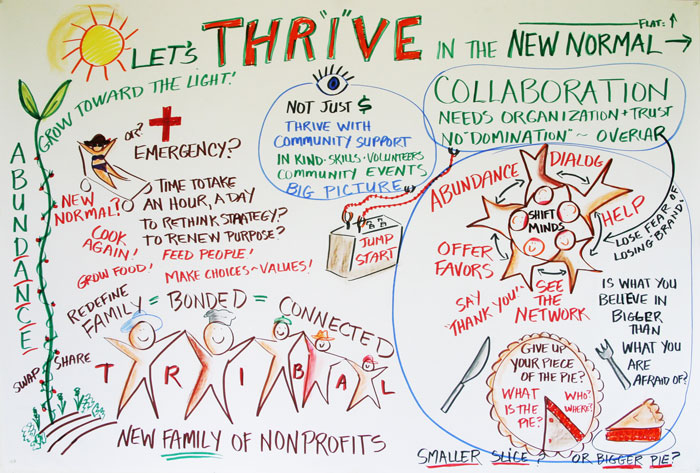 LET'S THR"I"VE IN THE NEW NORMAL
FLAT:
GROW TOWARD THE LIGHT!
ABUNDANCE
OR?
EMERGENCY?
NEW
NORMAL?
TIME TO TAKE
AN HOUR, A DAY
TO RETHINK STRATEGY?
TO RENEW PURPOSE?
COOK
AGAIN!
FEED PEOPLE!
GROW FOOD!
MAKE CHOICES ~ VALUES!
NOT JUST $
THRIVE WITH
COMMUNITY SUPPORT
IN KIND · SKILLS · VOLUNTEERS
COMMUNITY EVENTS
BIG PICTURE
JUMP
START
COLLABORATION
NEEDS ORGANIZATION + TRUST
NO "DOMINATION" ~ OVERLAP
ABUNDANCE
DIALOG
HELP
SHIFT
MINDS
LOSE FEAR OF
LOSING BRAND.
OFFER
FAVORS
SAY
"THANK YOU"
SEE
THE
NETWORK
IS WHAT YOU
BELIEVE IN
BIGGER
THAN
WHAT YOU
ARE
AFRAID OF?
GIVE UP
YOUR PIECE
OF THE PIE?
WHAT
IS THE
PIE?
WHO?
WHERE?
SMALLER SLICE? OR BIGGER PIE?
REDEFINE
FAMILY = BONDED = CONNECTED
TRIBAL
SWAP
SHARE
NEW FAMILY OF NONPROFITS